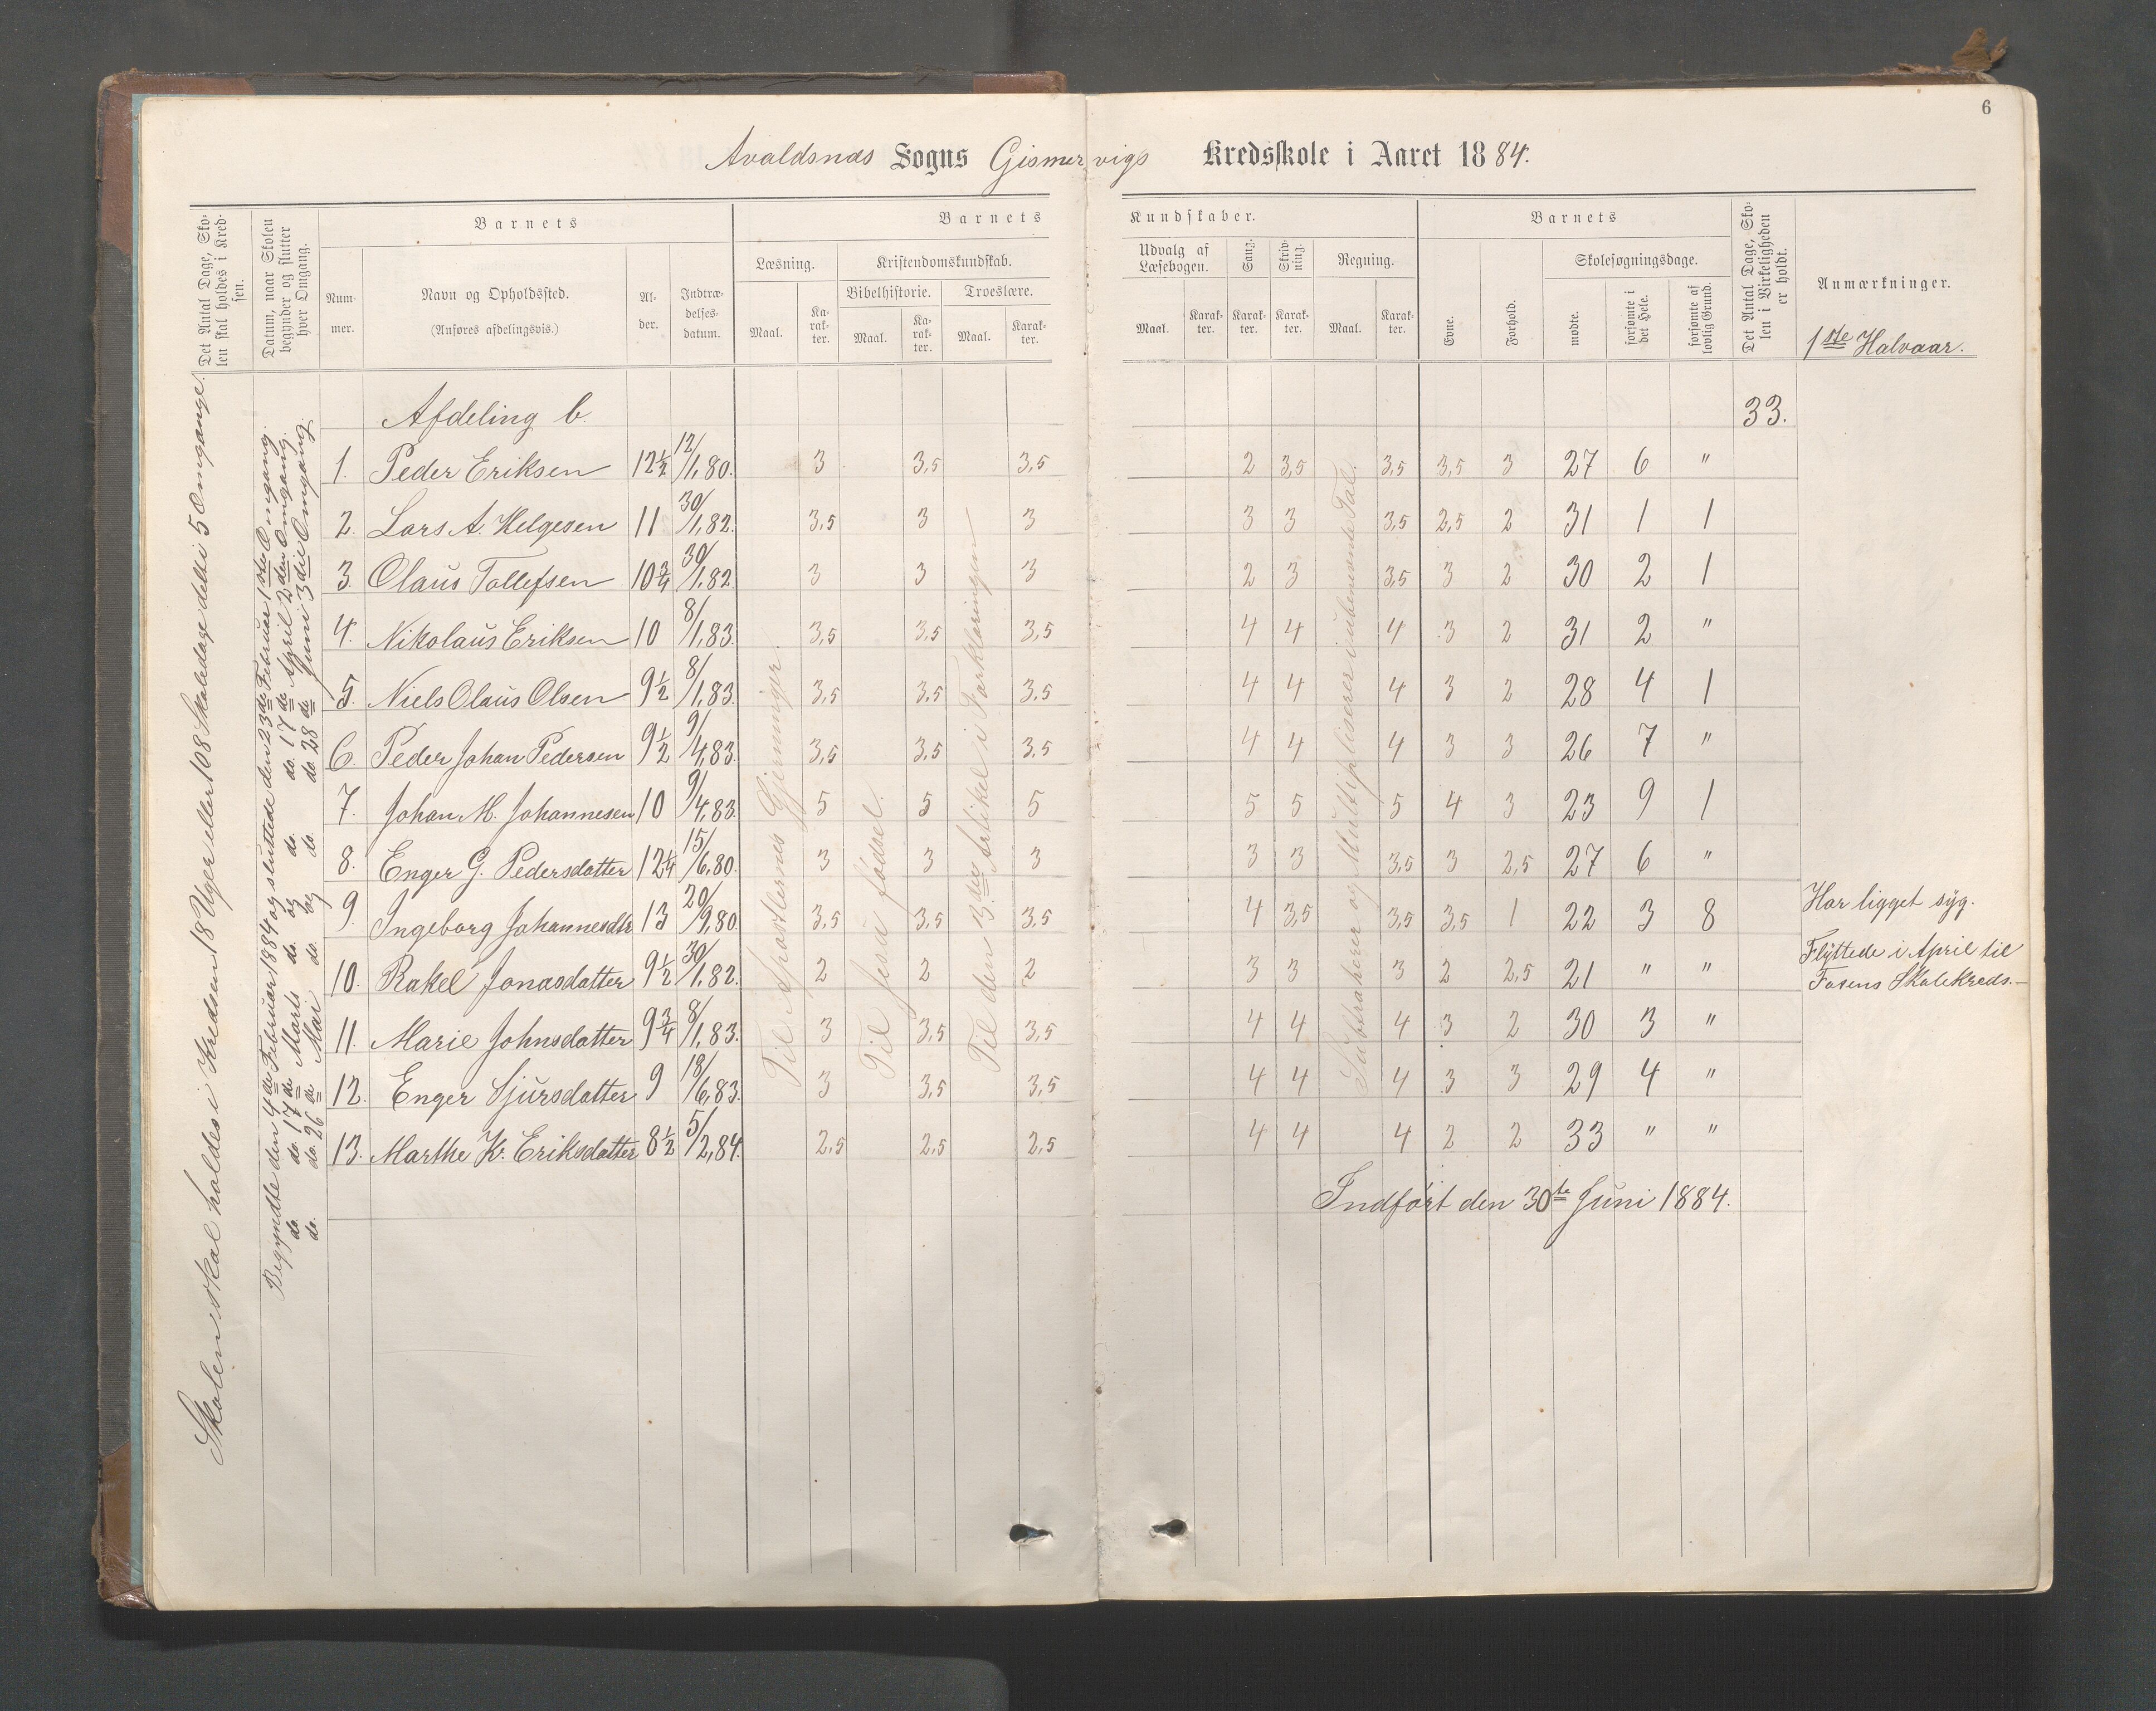 6
Avaldsnæs Sogns Gismervigs Kredsskole i Aaret 1884.
Det Antal Dage, Sko-
len skal holdes i Kred-
sen.
Datum, naar Skolen
begynder og slutter
hver Omgang.
Barnets
Num-
mer.
Navn og Opholdssted.
(Anføres afdelingsvis.)
Al-
der.
Indtræ-
delses-
datum.
Barnets Kundskaber.
Læsning.
Maal.
Ka-
rak-
ter.
Kristendomskundskab.
Bibelhistorie.
Maal.
Ka-
rak-
ter.
Troeslære.
Maal.
Karak-
ter.
Udvalg af
Læsebogen.
Maal.
Karak-
ter.
Sang.
Karak-
ter.
Skriv-
ning.
Karak-
ter.
Regning.
Maal.
Karak-
ter.
Barnets
Evne.
Forhold.
Skolesøgningsdage.
mødte.
forsømte i
det Hele.
forsømte af
lovlig Grund.
Det Antal Dage, Sko-
len i Virkeligheden
er holdt.
Anmærkninger.
1ste Halvaar.
Skolen skal holdes i Kredsen 18 Uger eller 108 Skoledage delt i 5 Omgange.
Begyndte den 4de Februar 1884 og sluttede den 23de Februar 1ste Omgang.
do. do. 17de Marts do. og do. do. 17de April 2den Omgang.
do. do. 26de Mai do. og do. do. 28de Juni 3die Omgang.
Afdeling b. 33.
1. Peder Eriksen 12½ 12/1,80. 3 3,5 3,5 2 3,5 3,5 3,5 3 27 6 "
2. Lars A. Helgesen 11 30/1,82. 3,5 3 3 3 3 3,5 2,5 2 31 1 1
3. Olaus Tollefsen 10¾ 30/1,82 3 3 3 2 3 3,5 3 2 30 2 1
4. Nikolaus Eriksen 10 8/1,83. 3,5 3,5 3,5 4 4 4 3 2 31 2 "
5. Niels Olaus Olsen 9½ 8/1,83. 3,5 3,5 3,5 4 4 4 3 2 28 4 1
6. Peder Johan Pedersen 9½ 9/4,83. 3,5 3,5 3,5 4 4 4 3 3 26 7 "
7. Johan M. Johannesen 10 9/4,83. 5 5 5 5 5 5 4 3 23 9 1
8. Enger G. Pedersdatter 12¼ 15/6,80. 3 3 3 3 3 3,5 3 2,5 27 6 "
9. Ingeborg Johannesdtr 13 20/9,80. 3,5 3,5 3,5 4 3,5 3,5 3,5 1 22 3 8 Har ligget syg.
10. Rakel Jonasdatter 9½ 30/1,82. 2 2 2 3 3 3 2 2,5 21 " " Flyttede i April til
Fosens Skolekreds.
11. Marie Johnsdatter 9¾ 8/1,83. 3 3,5 3,5 4 4 4 3 2 30 3 "
12. Enger Sjursdatter 9 18/6,83. 3 3,5 3,5 4 4 4 3 3 29 4 "
13. Marthe K. Eriksdatter 8½ 5/2,84. 2,5 2,5 2,5 4 4 4 2 2 33 " "
Til Apostlernes Gjerninger.
Til Jesu fødsel.
Til den 3die Artikel i Forklaringen
Subtraherer og Multipliserer i ubenævnte Tal.
Indført den 30te Juni 1884.